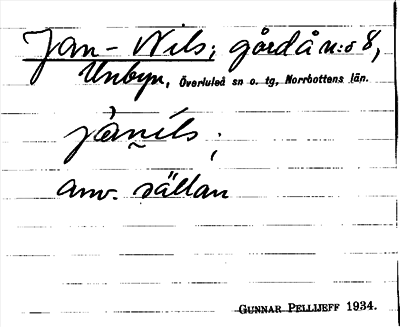 Jan-Nils; gård å n:o 8,
Unbyn, Överluleå sn o. tg, Norrbottens län.
jànils.
anv. sällan
GUNNAR PELLIJEFF 1934.